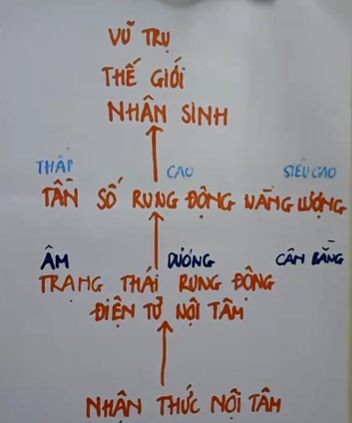 VŨ TRỤ
THẾ GIỚI
NHÂN SINH
THẤP CAO SIÊU CAO
TẦN SỐ RUNG ĐỘNG NĂNG LƯỢNG
ÂM DƯƠNG CÂN BẰNG
TRẠNG THÁI RUNG ĐỘNG
ĐIỆN TỬ NỘI TÂM
NHẬN THỨC NỘI TÂM